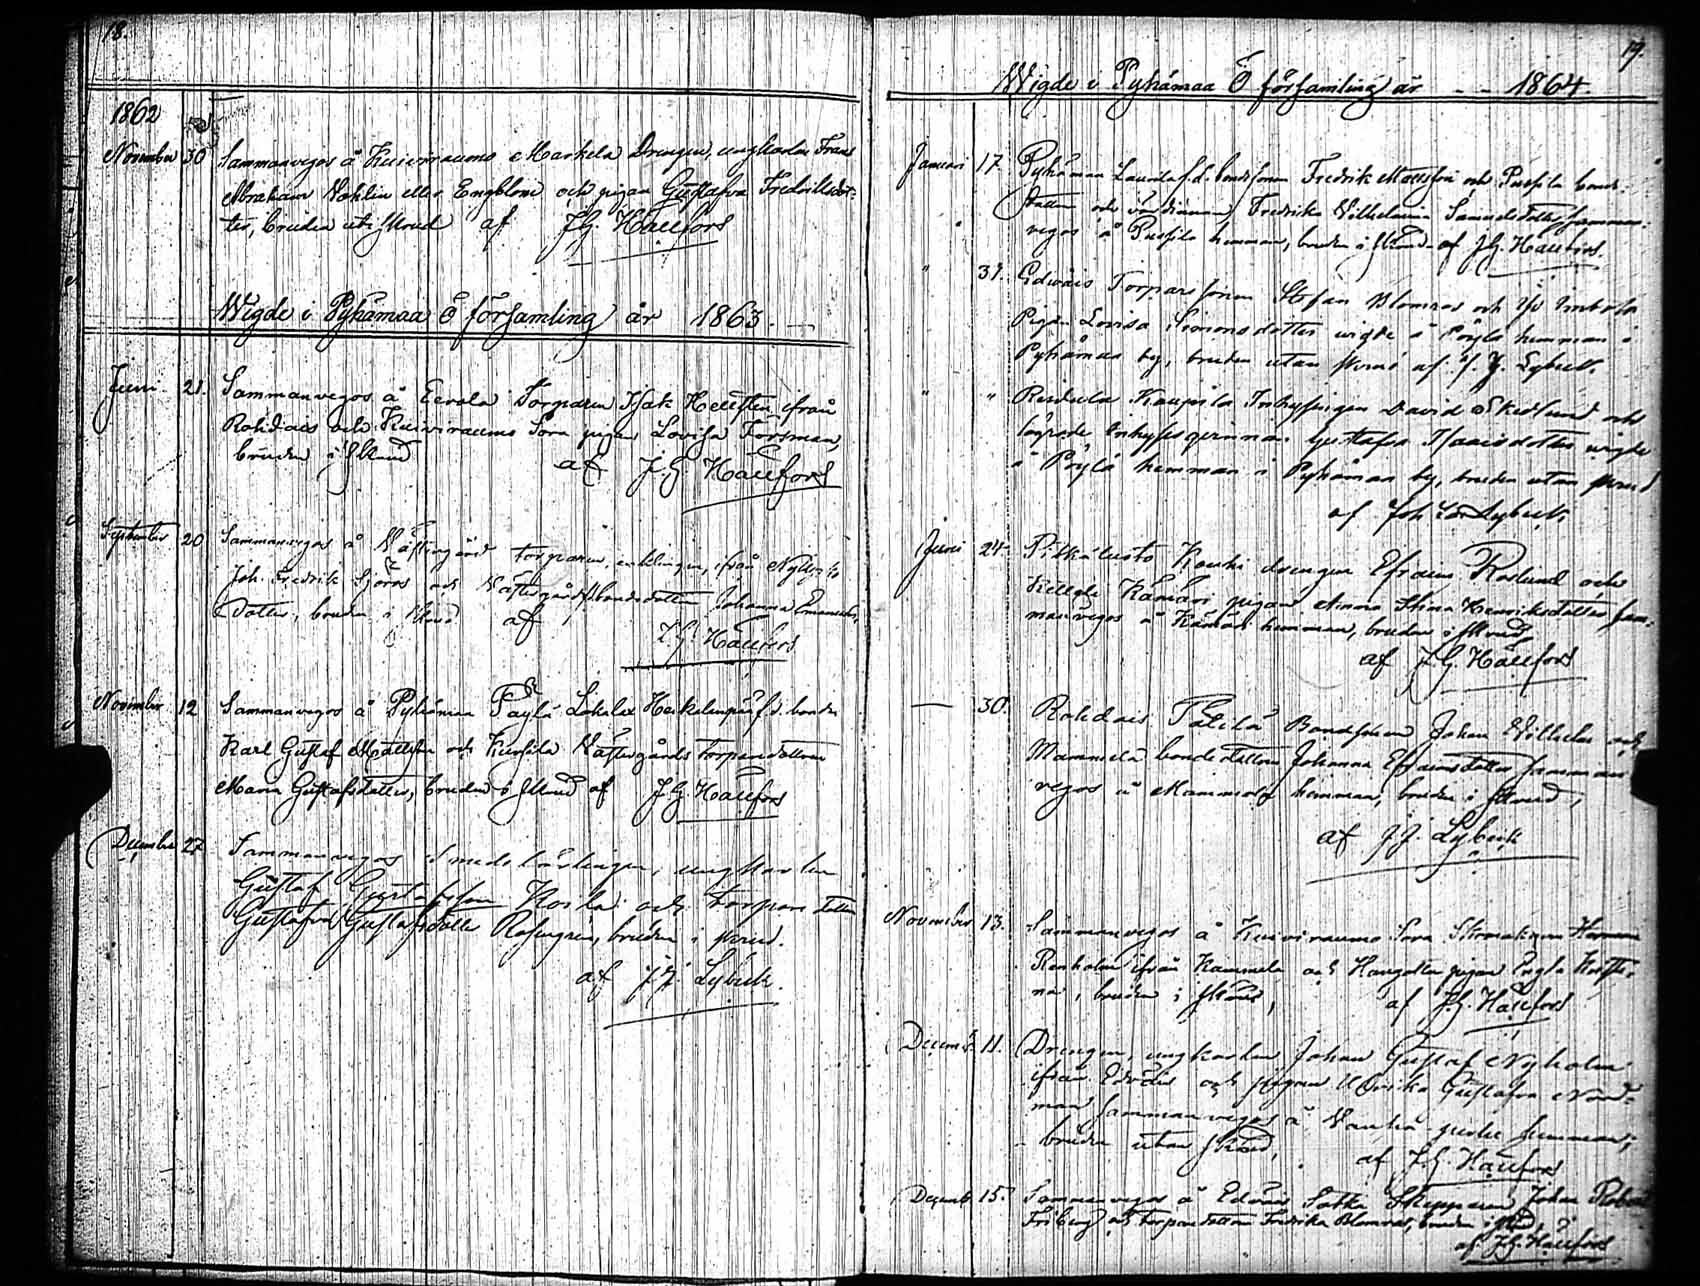 18.
1862
November 30 Sammanvegos å Kuiviraumo Markela Drengen, ungkarlen Frans
Abraham Wahlin eller Engblom och pigan Gustafva Fredriksdot-
ter, bruden uti skrud af J.G. Hällfors
Wigde i Pyhämaa Ö församling år 1863.
Juni 21. Sammanvegos å Eerola Torparen Isak Hellsten ifrån
Rohdais och Kuiviraumo Sora pigan Lovisa Forsman,
bruden i skrud af J.G. Hällfors
September 20 Sammanvegos å Wästergård torparen, enklingen, ifrån
Joh. Fredrik Sjöros och Wästergårds bondedottren Johanna Emanuels-
dotter, bruden i skrud af J.G. Hällfors
November 12 Sammanvegos å Pyhämaa Päylä Lokalax Heikelänpää f.d. bonden
Karl Gustaf Mattsson och Kursila Wästergårds torparedottren
Maria Gustafsdotter, bruden i skrud af J.G. Hällfors
December 27 Sammanvegos Smedslärlingen, ungkarlen
Gustaf Gustafsson Koski och torparedottren
Gustafva Gustafsdotter Rosengren, bruden i skrud.
af J.J. Lybeck.
19.
Wigde i Pyhämaa Ö församling år - - 1864.
Januari 17. Pyhämaa Laurila f.d. bondesonen Fredrik Mattsson och Puspila bonde-
dottren och värdinnan Fredrika Wilhelmina Samuelsdotter, samman-
vegos å Puspila hemman, bruden i skrud af J.G. Hällfors.
" 31. Edväis Torparesonen Stefan Blomros och
Pigan Lovisa Simonsdotter wigde å Päylä hemman i
Pyhämaa by, bruden utan skrud af J.J. Lybeck.
" " Reidula Kaupila Inhysingen David Skedlund och
Inhyseqvinnan Gustafva Isaacsdotter wigde
å Päylä hemman i Pyhämaa by, bruden utan skrud
af Joh. Lybeck.
Juni 24. Pitkäluoto Kouhi drengen Efraim Roslund och
Ketteli Kämäri pigan Anna Stina Henriksdotter sam-
manvegos å Kämäri hemman, bruden i skrud,
af J.G. Hällfors
— 30. Rohdais Pälilä Bondesonen Johan Wilhelm och
Mammela bondedottren Johanna Efraimsdotter samman-
vegos å Mammela hemman, bruden i skrud,
af J.J. Lybeck
November 13. Sammanvegos å Kuiviraumo Sora Skomakaren Herman
Renholm ifrån Kammela och Haugatta pigan Engla Kristi-
na, bruden i skrud, af J.G. Hällfors
Decemb. 11. Drengen, ungkarlen Johan Gustaf Nyholm
ifrån Edväis och pigan Ulrika Gustafva Nord-
man sammanvegos å Vanha hemman,
bruden utan skrud, af J.G. Hällfors
Decemb. 15. Sammanvegos å Edväis Satka Skepparen Johan Robert
Friberg och torparedottren Fredrika Blomros, bruden i skrud,
af J.G. Hällfors